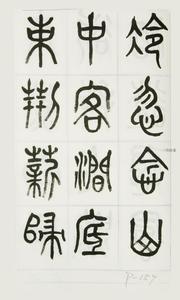 冷忽念山
中客澗底
束荊薪歸
P-157